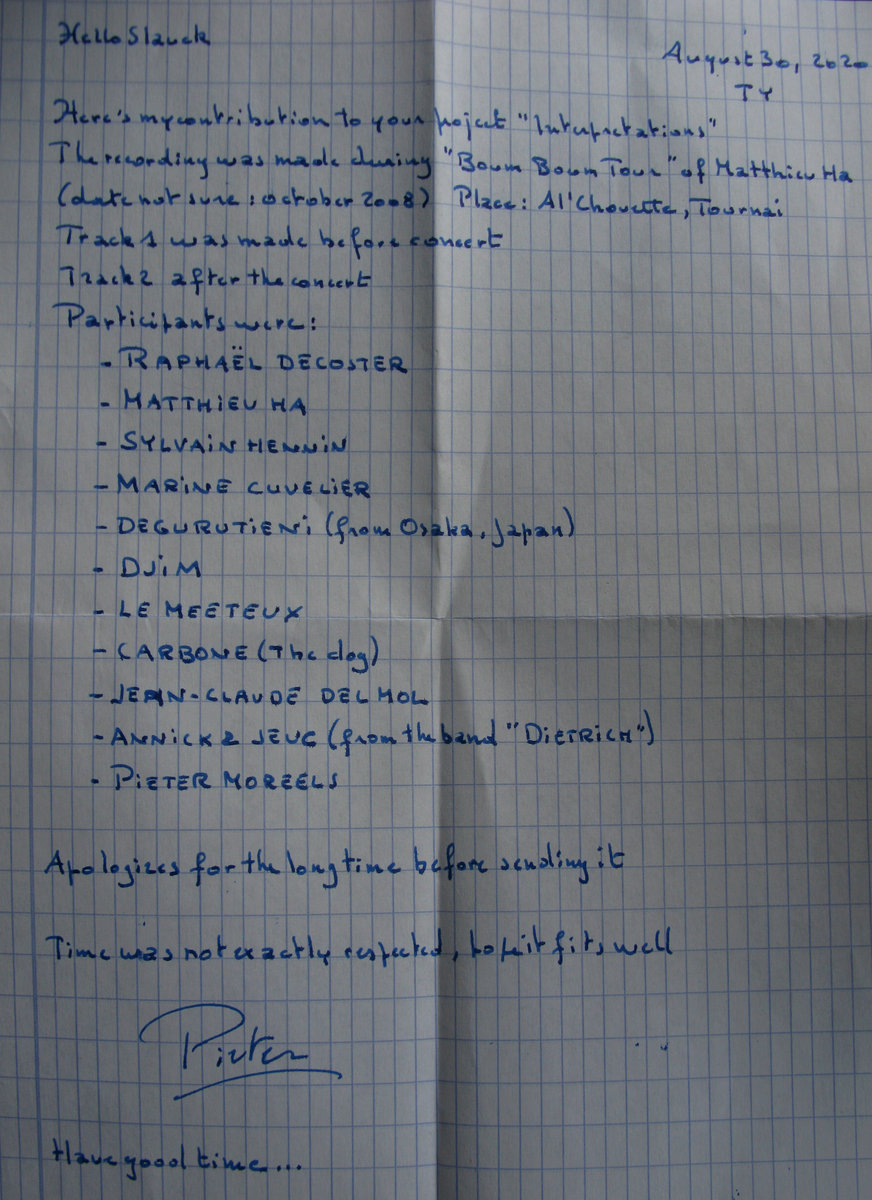 Hello Slavek
August 30, 2020
TY
Here's my contribution to your project "Interpretations"
The recording was made during "Boum Boum Tour" of Matthieu Ha
(date not sure : october 2008) Place : Al'Chouette, Tournai
Track 1 was made before concert
Track 2 after the concert
Participants were :
- RAPHAËL DECOSTER
- MATTHIEU HA
- SYLVAIN HENNIN
- MARINE CUVELIER
- DEGURUTIENI (from Osaka, Japan)
- DJIM
- LE MEETEUX
- CARBONE (The dog)
- JEAN-CLAUDE DELMOL
- ANNICK & JEUC (from the band "DIETRICH")
- PIETER MOREELS
Apologizes for the long time before sending it
Time was not exactly respected, hope it fits well
Pieter
Have good time...